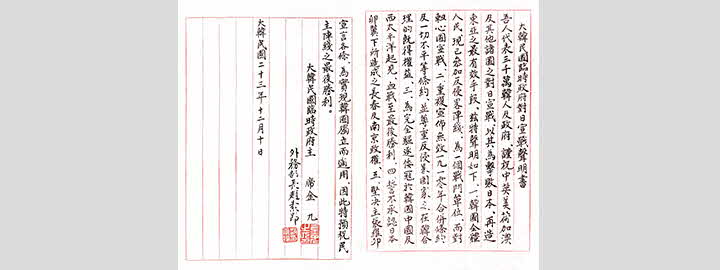 大韓民國臨時政府對日宣戰聲明書
吾人代表三千萬韓人及政府、謹祝中英美荷加濠
及其他諸國之對日宣戰、以其爲擊敗日本、再造
東亞之最有效手段、玆特聲明如下、一、韓國全體
人民、現已參加反侵畧陣綫、爲一個戰鬥單位、而對
軸心國宣戰、二、重複宣佈無效一九一○年合倂條約
及一切不平等條約、並尊重反侵畧國家之在韓合
理的旣得權益、三、爲完全驅逐倭寇於韓國中國及
西太平洋起見、血戰至最後勝利、四、誓不承認日本
卵翼下所造成之長春及南京政權、五、堅決主張羅邱
宣言各條、爲實現韓國獨立而適用、因此特預祝民
主陣綫之最後勝利。
大韓民國臨時政府主 席金 九
外務部長趙素卬
大韓民國二十三年十二月十日